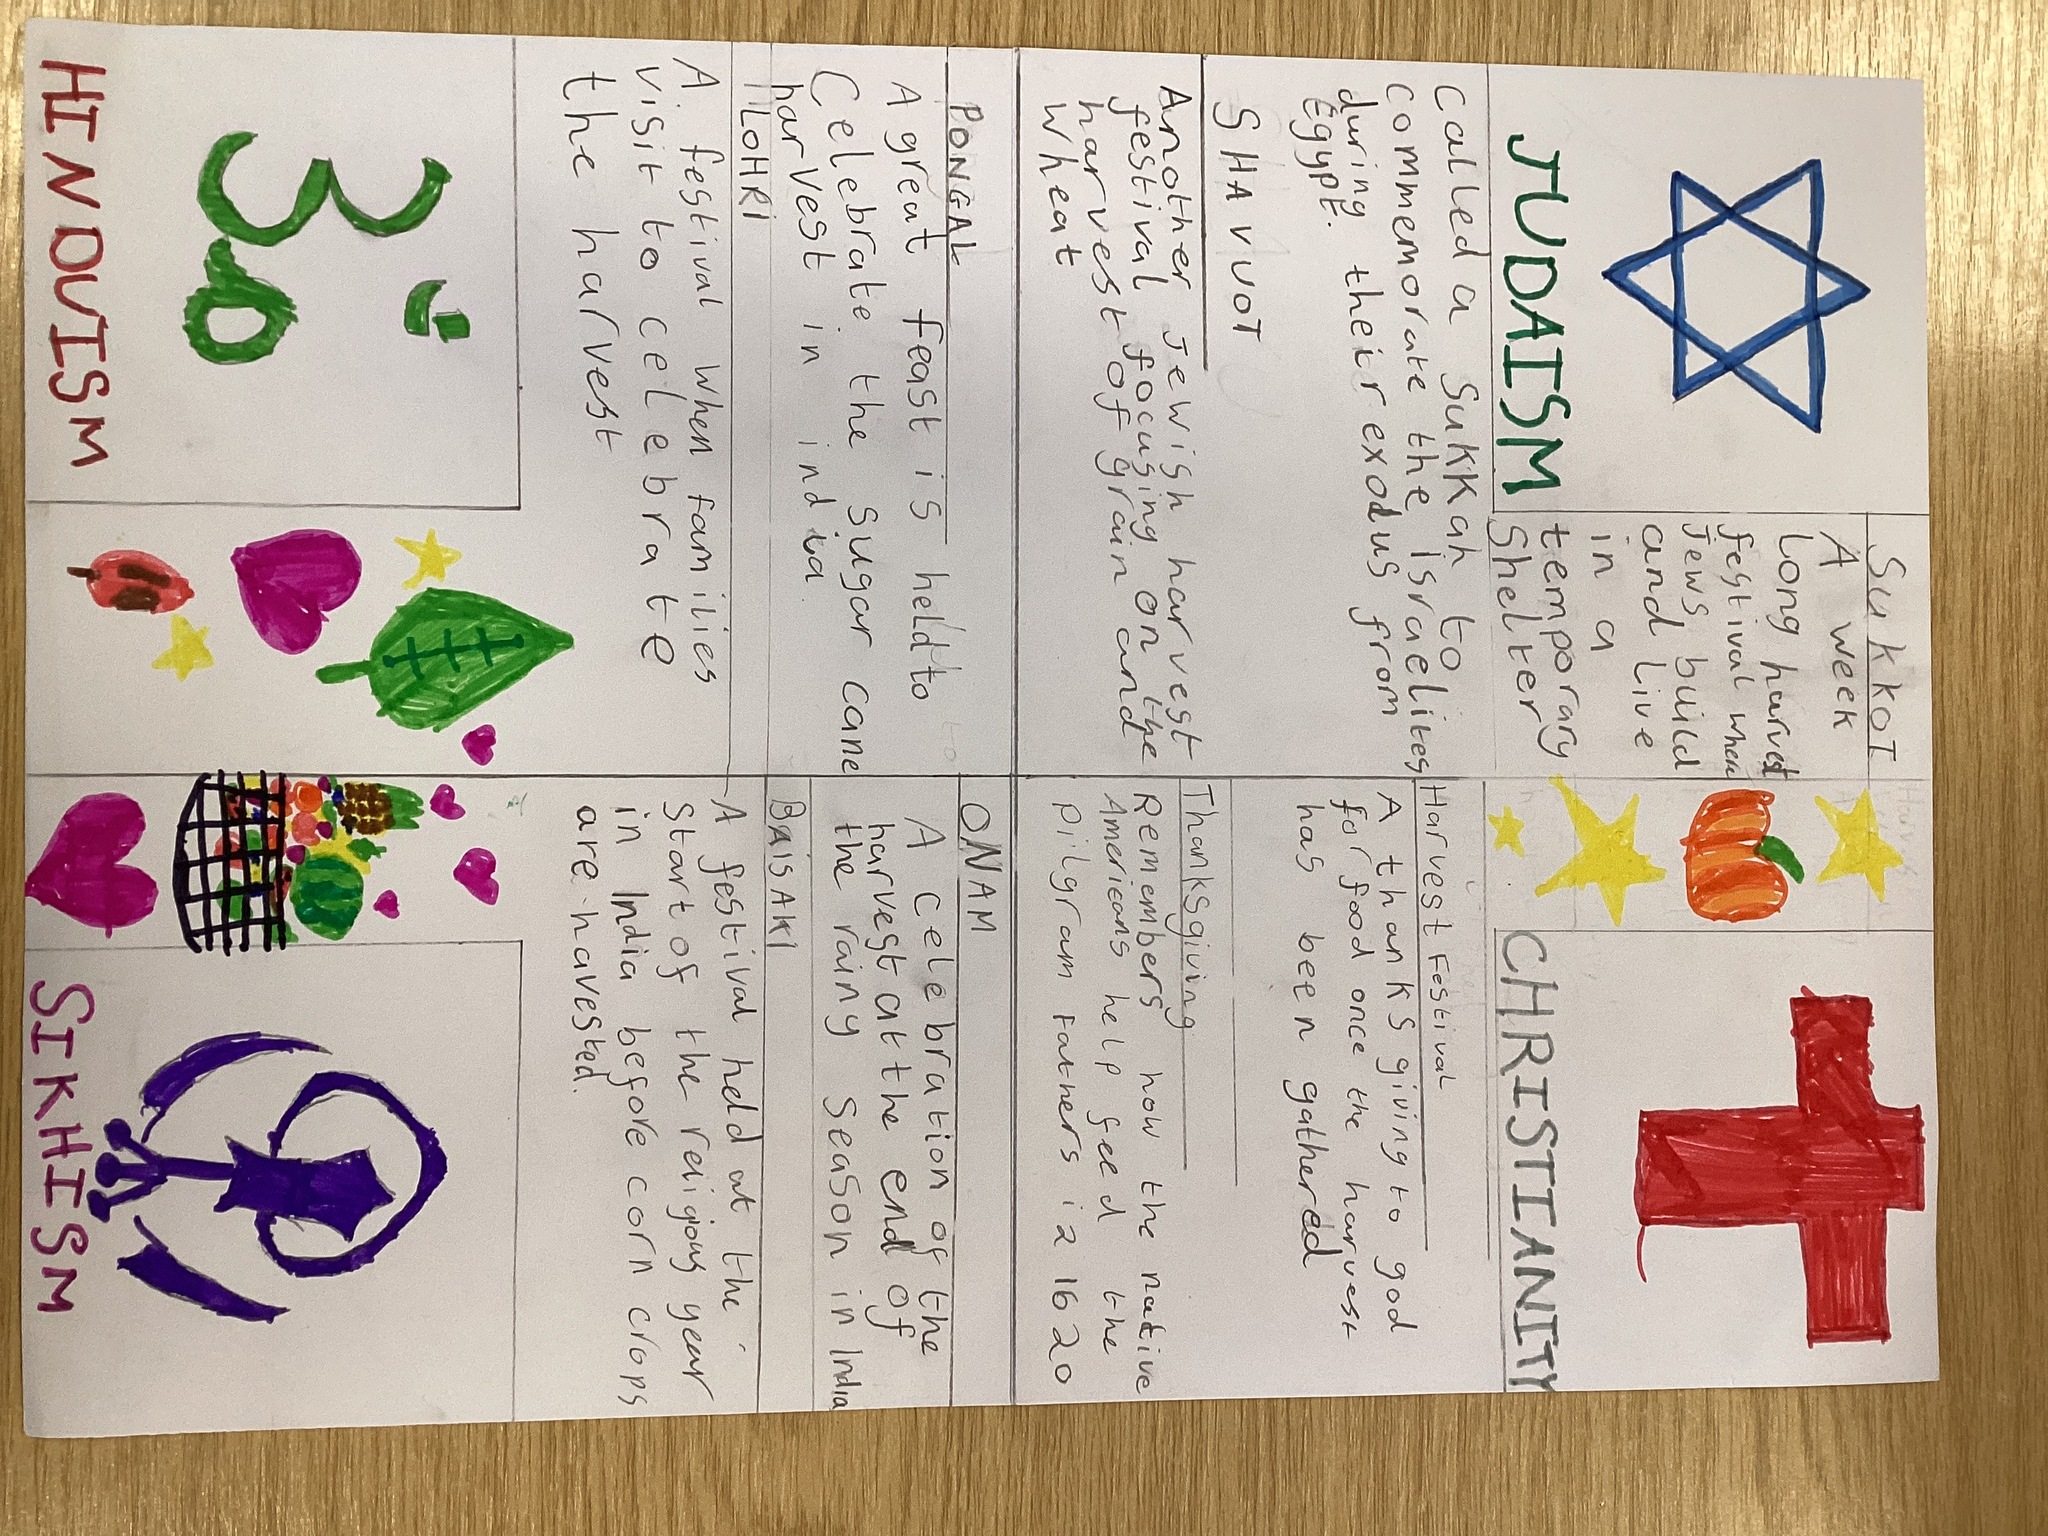 JUDAISM
SukkoT
A week
Long harvest
festival when
Jews build
and live
in a
temporary
Shelter
Called a Sukkah to
Commemorate the israelites
during their exodus from
Egypt.
SHAVUOT
Another Jewish harvest
festival focusing on the
harvest of grain and
wheat
CHRISTIANITY
Harvest Festival
A thanks giving to god
for food once the harvest
has been gathered
Thanksgiving
Remembers how the native
Americans help feed the
pilgram fathers i 2 1620
PONGAL
A great feast is held to
Celebrate the sugar cane
harvest in india.
LOHRI
A festival when families
visit to celebrate
the harvest
HINDUISM
ONAM
A celebration of the
harvest at the end of
the rainy season in India
BAISAKI
A festival held at the
start of the religious year
in India before corn crops
are havested.
SIKHISM